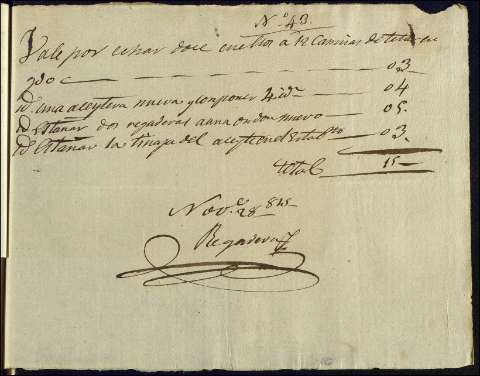 N.º 43.
Vale por echar doce cuellos a 12 Camisas de
03
Yd. una aceytera nueva y componer 4 id.^s — 04
Yd. Estañar dos regaderas a una ondon nuevo — 05.
Yd. Estañar la tinaja del aceyte en el Estab.^to — 03.
total 15—
Nov.^e 28 815
Regadera